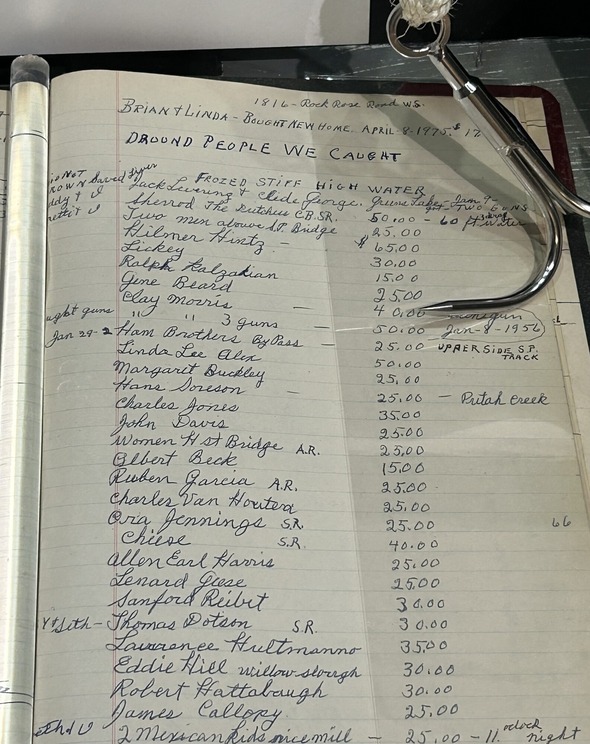 1816 - Rock Rose Road W.S.
BRIAN & LINDA - BOUGHT NEW HOME. APRIL-8-1975. $ 17
DROUND PEOPLE WE CAUGHT
FROZED STIFF HIGH WATER
Jack Levering & Clide George. Grune Lake, Jan-9-
Sherrod The Dutchus C.B.SR. 50.00 - 60 ft water
Two men above S.P. Bridge 25.00
Hilmer Hintz - $ 65.00
Lickey 30.00
Ralph Kalzakian 15.00
Gene Beard 25.00
Clay Morris - 40.00
" " 3 guns - 50.00 Jan-8-1956
Jan 29-2 Ham Brothers By Pass - 25.00 UPPER SIDE S.P. TRACK
Linda Lee Alex 50.00
Margaret Buckley 25.00
Hans Soreson - 25.00 - Putah Creek
Charles Jones 35.00
John Davis 25.00
Women H st Bridge A.R. 25.00
Elbert Beck 15.00
Ruben Garcia A.R. 25.00
Charles Van Houten 25.00
Ora Jennings S.R. 25.00 66
Chiese S.R. 40.00
Allen Earl Harris 25.00
Lenard Giese 25.00
Sanford Reibit 30.00
& Seth - Thomas Dotson S.R. 30.00
Lawrence Hultmanno 35.00
Eddie Hill willow slough 30.00
Robert Hattabaugh 30.00
James Callopy 25.00
2 Mexican kids rice mill - 25.00 - 11. oclock night